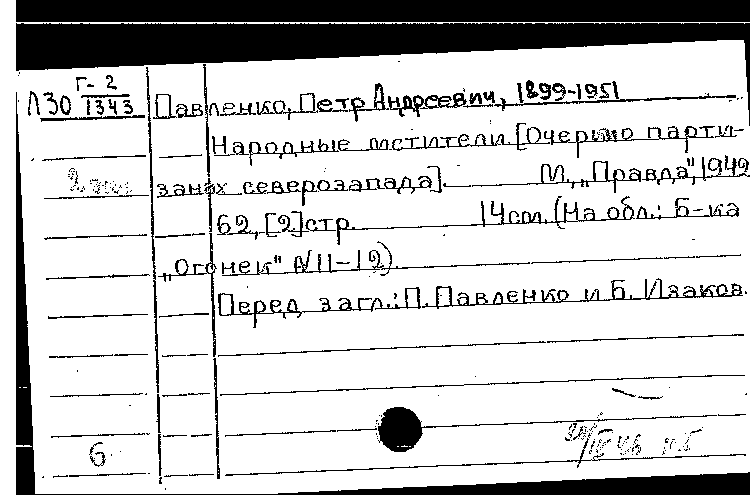 Л30 Г-2/1343
Павленко, Петр Андреевич, 1899-1951
Народные мстители. [Очерки о парти-
2 экз. занах северозапада]. М., „Правда", 1942
62, [2] стр. 14 см. (На обл.: Б-ка
„Огонек" № 11-12)
Перед загл.: П. Павленко и Б. Изаков.
6